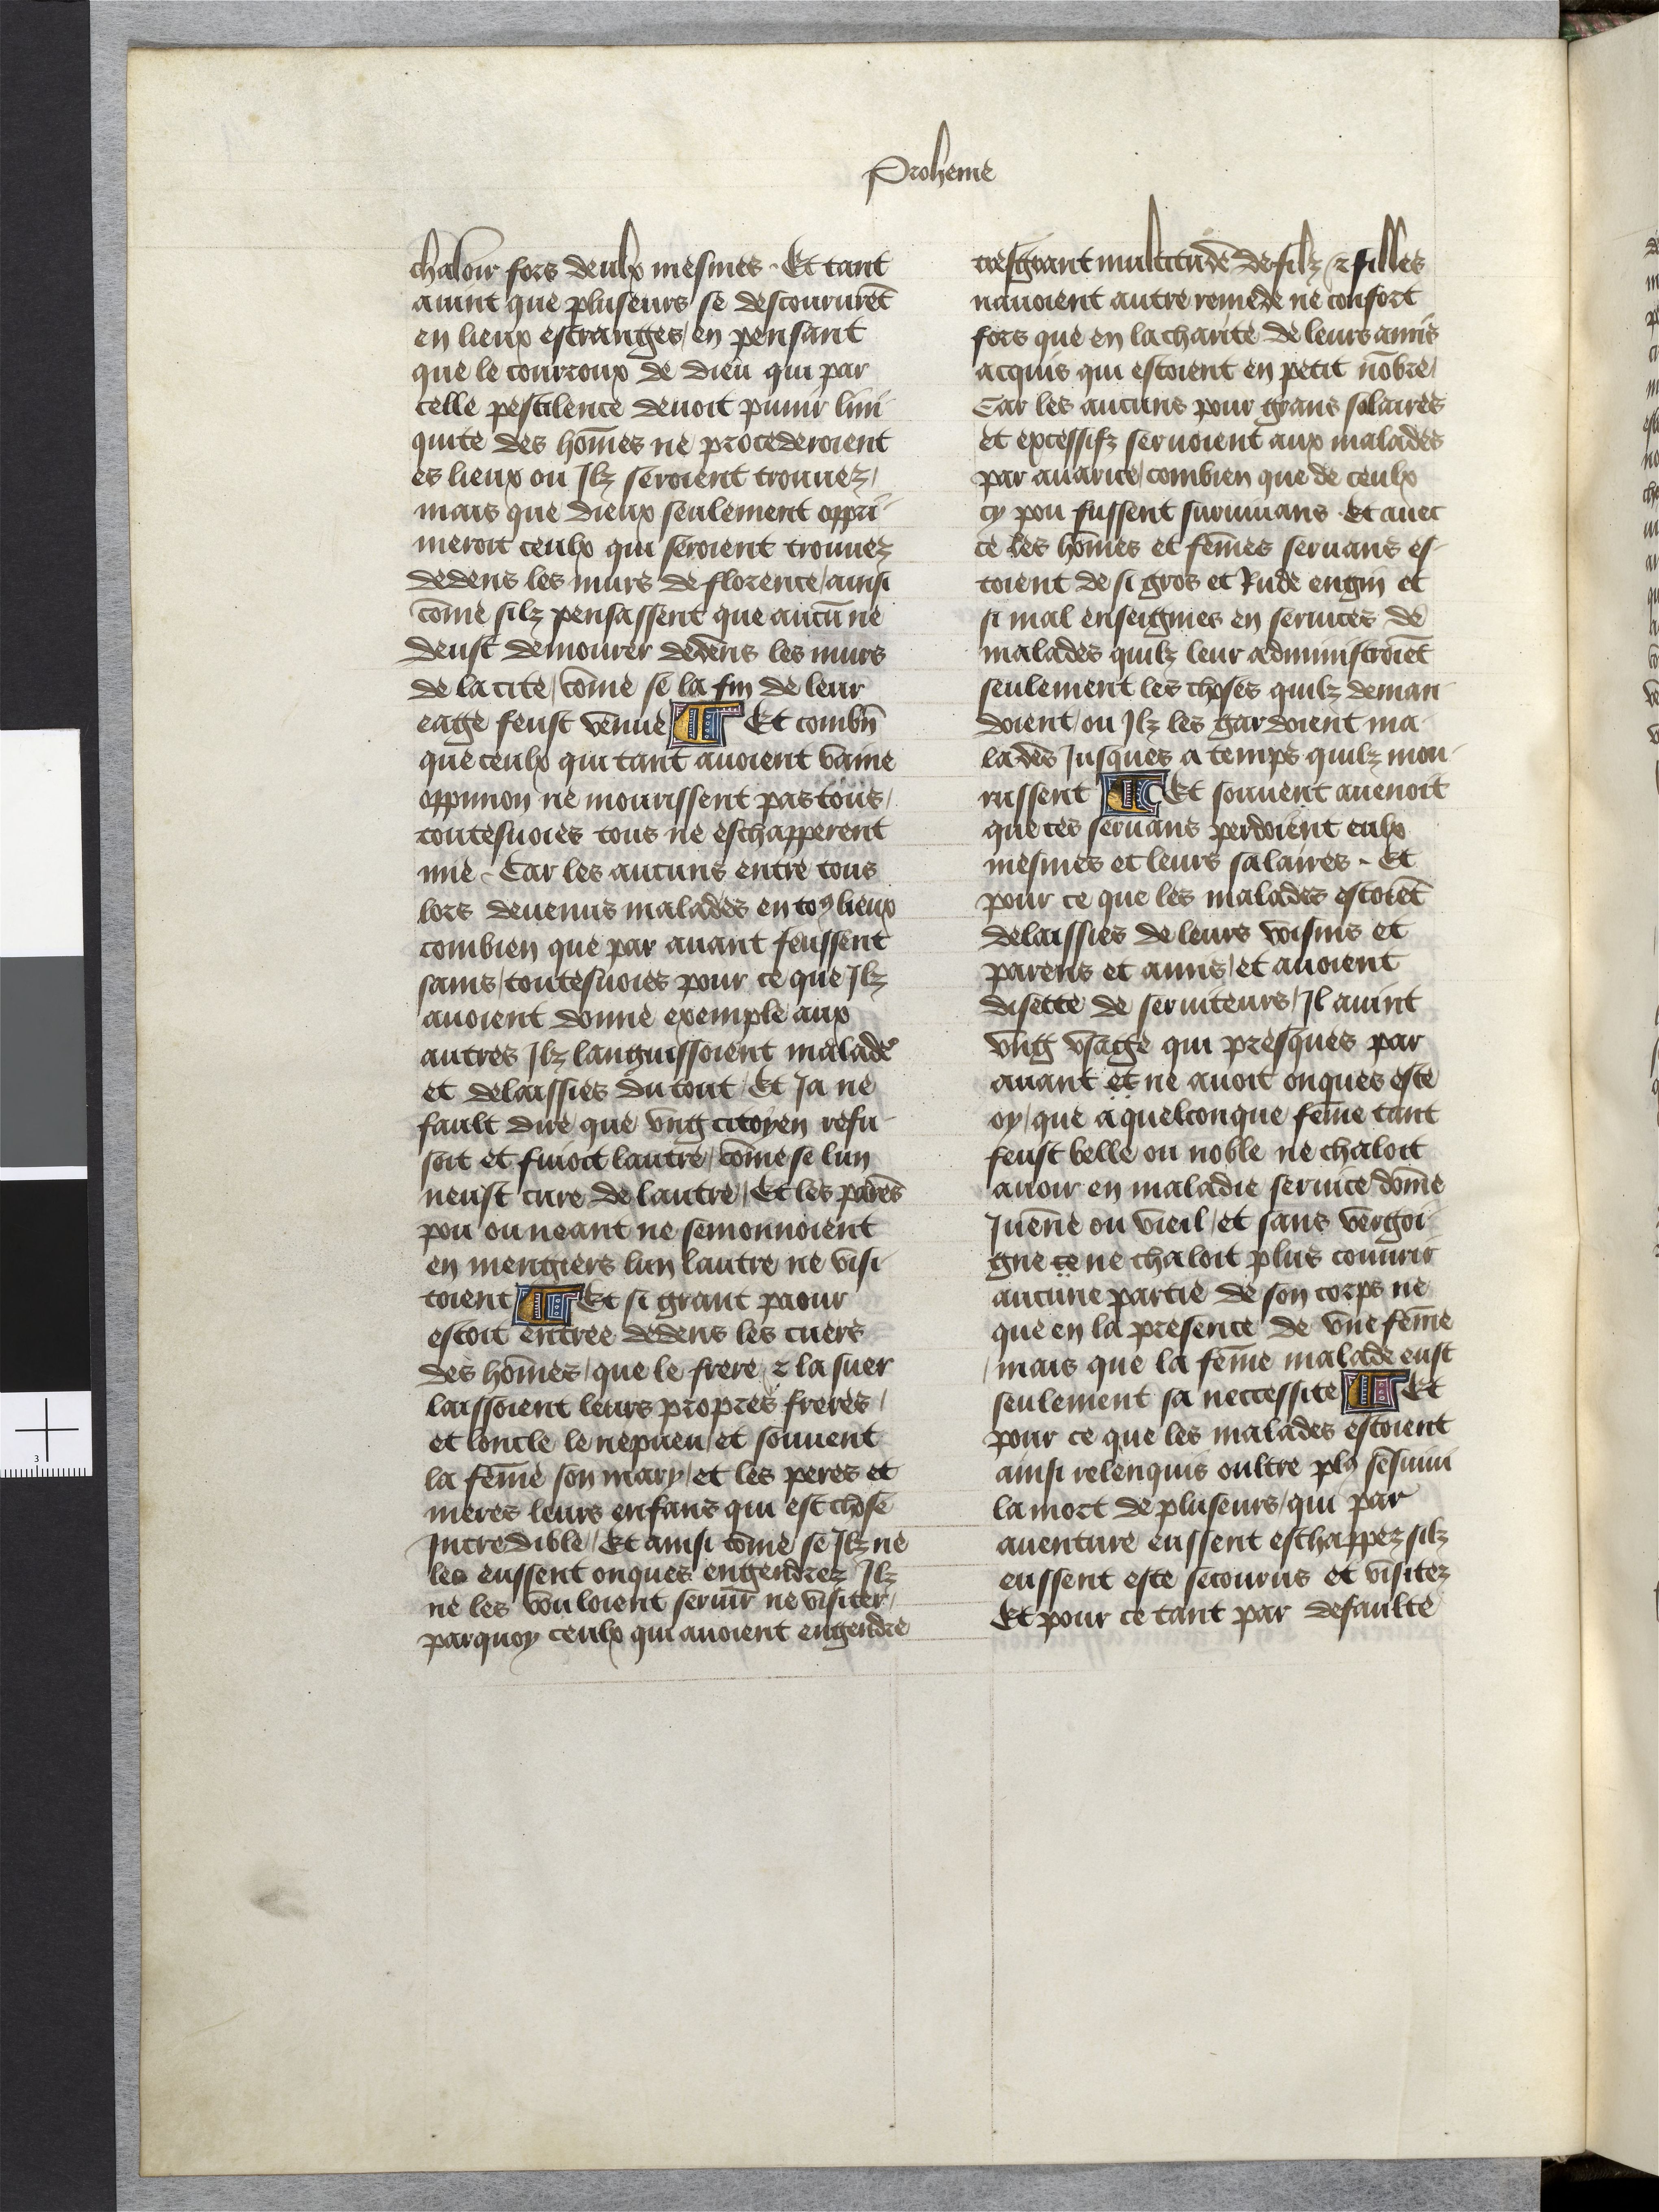 Proheme
chaloir fors deulx mesmes. Et tant
auint que pluseurs se descoururēt
en lieux estranges / en pensant
que le courroux de dieu qui par
celle pestilence deuoit punir lini
quite des hōmes ne procederoient
es lieux ou Jlz seroient trouuez /
mais que dieux seulement oppri-
meroit ceulx qui seroient trouuez
dedens les murs de florence / ainsi
cōme silz pensassent que aucū ne
deust demourer dedens les murs
de la cite / cōme se la fin de leur
eage feust venue ¶ Et combn̄
que ceulx qui tant auoient vaine
oppinion ne mourissent pas tous /
toutesuoies tous ne eschapperent
mie. Car les aucuns entre tous
lors deuenus malades en toꝰ lieux
combien que par auant feussent
sains / toutesuoies pour ce que Jlz
auoient donne exemple aux
autres Jlz languissoient malades
et delaissies du tout / Et Ja ne
fault dire que vng citoyen refu-
soit et fuioit lautre / cōme se lun
neust cure de lautre / Et les parēs
pou ou neant ne semonnoient
en mengiers lun lautre ne visi
toient ¶ Et si grant paour
estoit entree dedens les cuers
des hōmes / que le frere ⁊ la suer
laissoient leurs propres freres /
et loncle le nepueu / et souuent
la fēme son mary / et les peres et
meres leurs enfans qui est chose
Jncredible / Et ainsi cōme se Jlz ne
les eussent onques engendrez Jlz
ne les vouloient seruir ne visiter /
parquoy ceulx qui auoient engendre
tresgrant multitude de filz / ⁊ filles
nauoient autre remede ne confort
fors que en la charite de leurs amis
acquis qui estoient en petit nōbre /
Car les aucuns pour grans salaires
et excessifz seruoient aux malades
par auarice / combien que de ceulx
cy pou fussent suruiuans. Et auec
ce les hōmes et fēmes seruans es-
toient de si gros et Rude engin et
si mal enseignies en seruices de
malades quilz leur administroiēt
seulement les choses quilz deman
doient / ou Jlz les gardoient ma-
lades Jusques a temps quilz mou-
russent ¶ Et souuent auenoit
que ces seruans perdoient eulx
mesmes et leurs salaires. Et
pour ce que les malades estoiēt
delaissies de leurs voisins et
parens et amis / et auoient
disette de seruiteurs / Jl auint
vng vsage qui presques par
auant et ne auoit onques este
oy / que a quelconque fēme tant
feust belle ou noble ne chaloit
auoir en maladie seruice dōme
Juenne ou vieil / et sans vergoi
gne ce ne chaloit plus couurir
aucune partie de son corps ne
que en la presence de vne fēme
/ mais que la fēme malade eust
seulement sa neccessite ¶ Et
pour ce que les malades estoient
ainsi relenquis oultre plꝰ sensuiui
la mort de pluseurs / qui par
auenture eussent eschappez silz
eussent este secourus et visitez
Et pour ce tant par defaulte